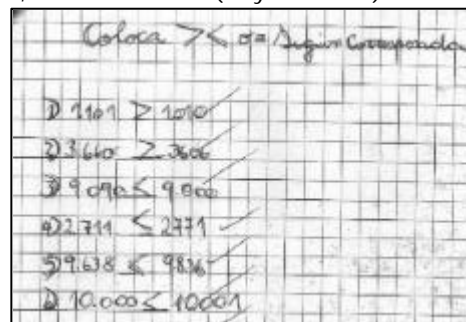 Coloca > < o = según corresponda
1) 1.101 > 1.010
2) 3.660 > 3606
3) 9.090 < 9.000
4) 2.711 < 2771
5) 9.638 < 9836
6) 10.000 < 10.001